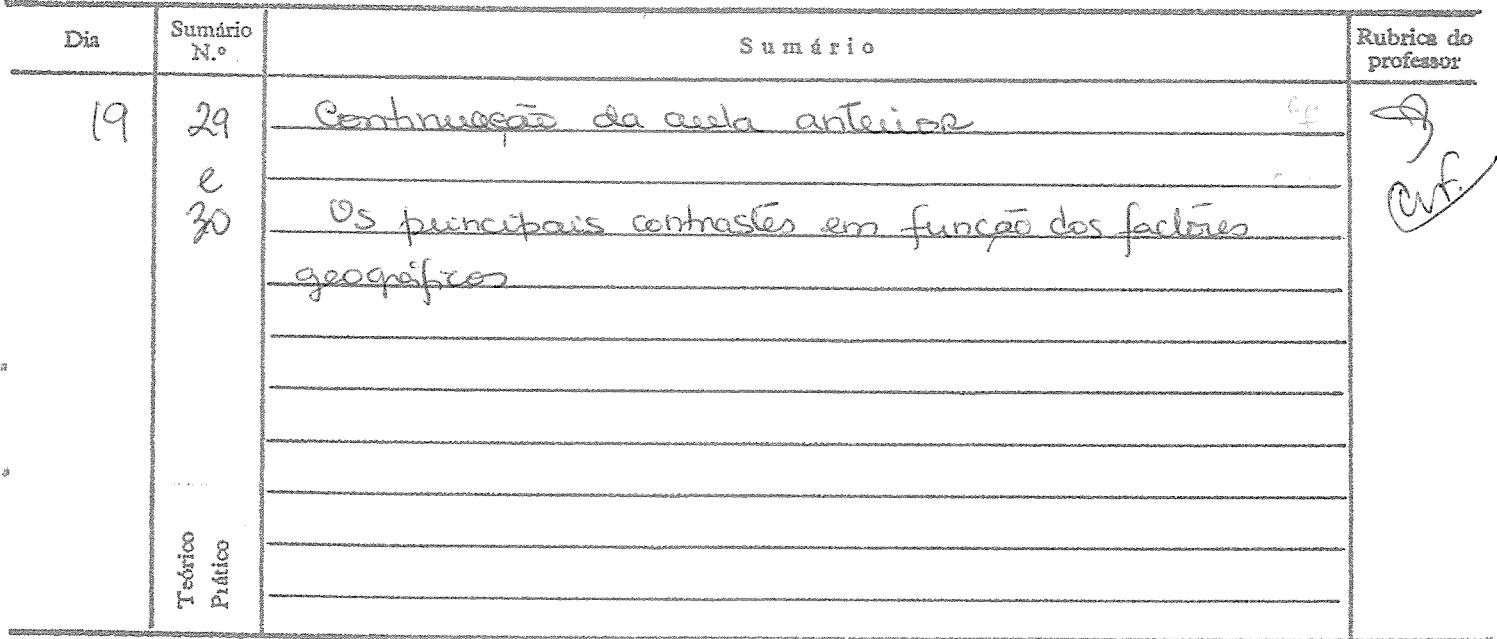 Dia Sumário N.º Sumário Rubrica do professor
19 29 Continuação da aula anterior
e
30 Os principais contrastes em função dos factores
geográficos
Teórico
Prático